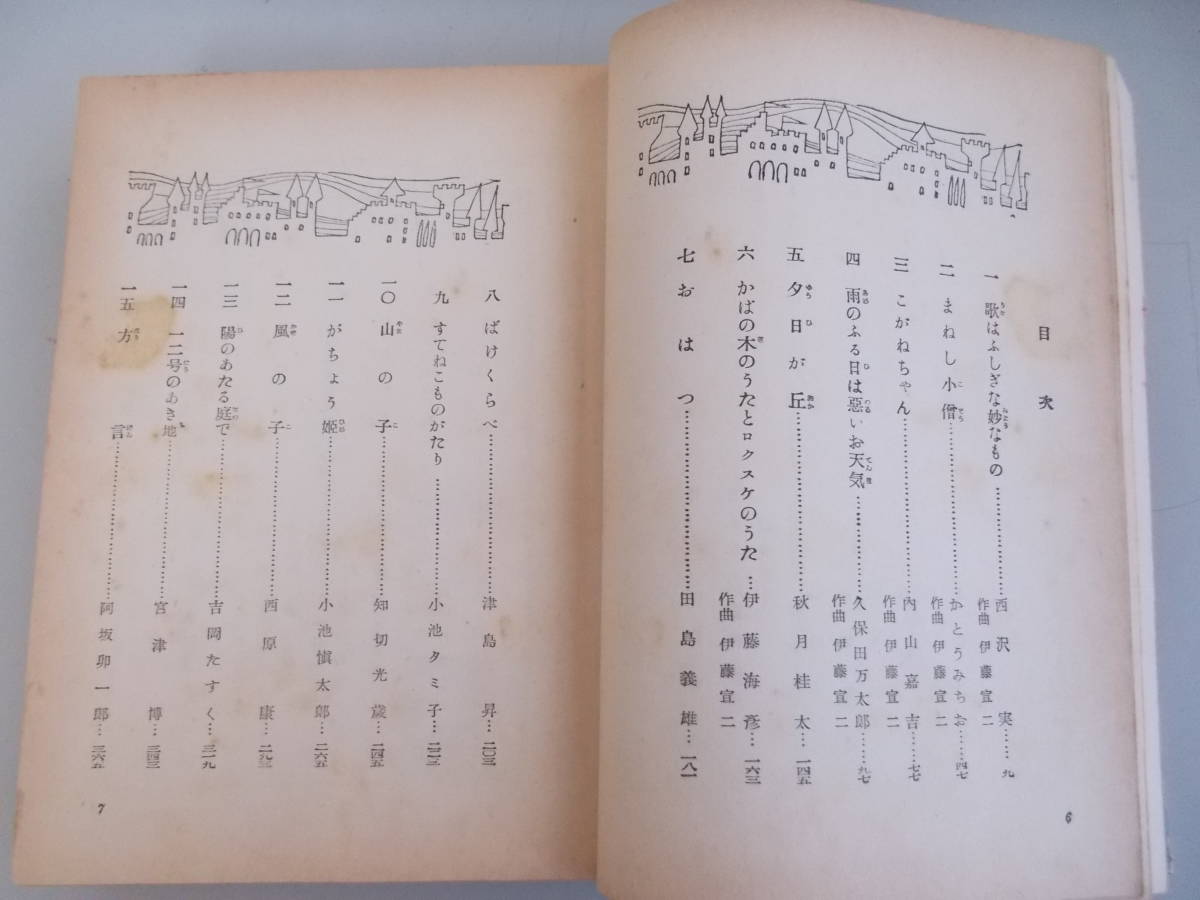 目次
一 歌はふしぎな妙なもの…西沢実……九
作曲 伊藤宣二
二 まねし小僧…かとうみちお…四七
作曲 伊藤宣二
三 こがねちゃん…内山嘉吉…七七
作曲 伊藤宣二
四 雨のふる日は悪いお天気…久保田万太郎……九七
作曲 伊藤宣二
五 夕日が丘…秋月桂太…一四五
六 かばの木のうたとロクスケのうた…伊藤海彦…一六三
作曲 伊藤宣二
七 おはつ…田島義雄…一八一
6
八 ばけくらべ…津島昇…二〇三
九 すてねこものがたり…小池タミ子…二二三
一〇 山の子…知切光歳…二四五
一一 がちょう姫…小池慎太郎…二六五
一二 風の子…西原康…二九三
一三 陽のあたる庭で…吉岡たすく…三一九
一四 一二号のあき地…宮津博…三四三
一五 方言…阿坂卯一郎…三六五
7